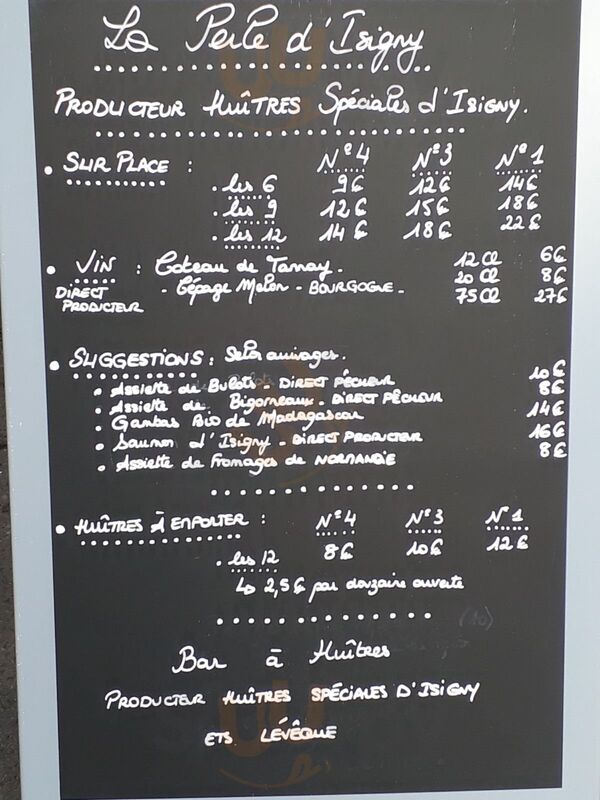 La Perle d'Isigny
PRODUCTEUR HUÎTRES Spéciales d'ISIGNY.
• SUR PLACE : N°4 N°3 N°1
. les 6 9€ 12€ 14€
. les 9 12€ 15€ 18€
. les 12 14€ 18€ 22€
• VIN : Coteau de Tannay. 12Cl 6€
DIRECT PRODUCTEUR - Cépage Melon - BOURGOGNE - 20Cl 8€
75Cl 27€
• SUGGESTIONS : Selon arrivages.
• Assiette de Bulots - DIRECT PÊCHEUR 10€
• Assiette de Bigorneaux - DIRECT PÊCHEUR 8€
• Gambas Bio de Madagascar 14€
• Saumon d'Isigny - DIRECT PRODUCTEUR 16€
• Assiette de Fromages de NORMANDIE 8€
• HUÎTRES À EMPORTER : N°4 N°3 N°1
. les 12 8€ 10€ 12€
↳ 2,5€ par douzaine ouverte
Bar à Huîtres
PRODUCTEUR HUÎTRES SPÉCIALES D'ISIGNY
ETS LÉVÊQUE